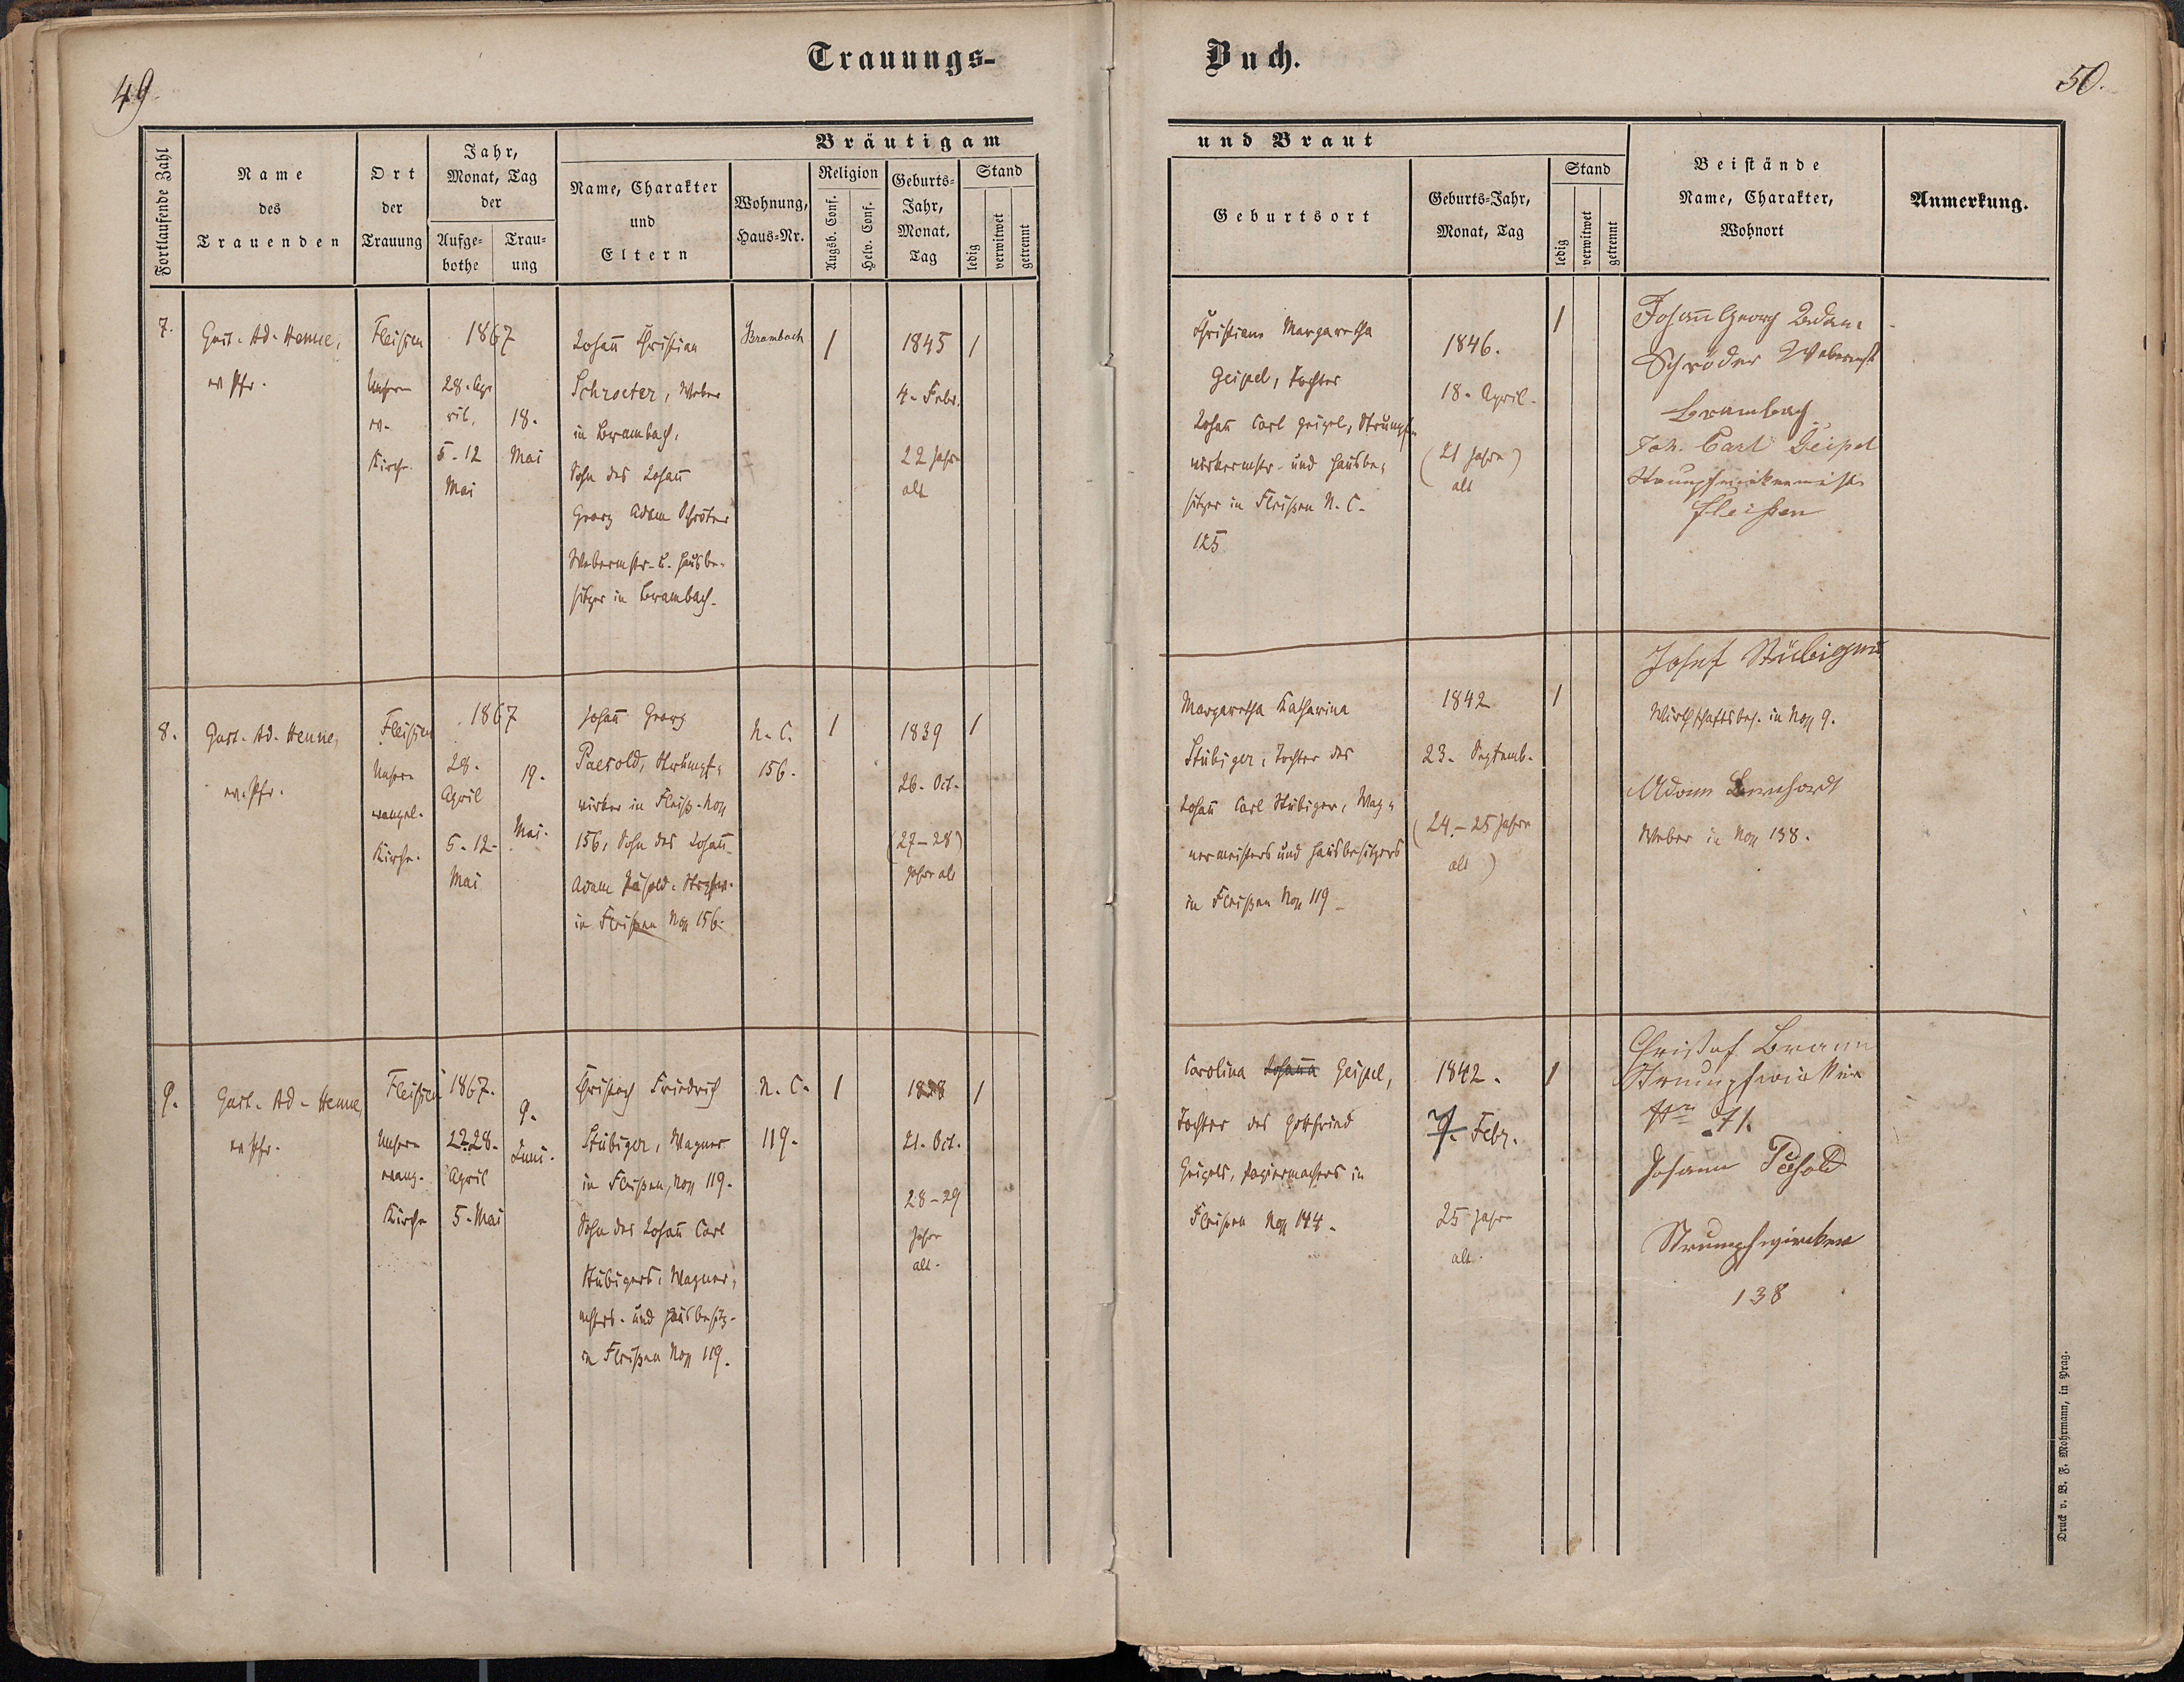 49.
Trauungs-
Fortlaufende Zahl
Name
des
Trauenden
Ort
der
Trauung
Jahr,
Monat, Tag
der
Aufge-
bothe
Trau-
ung
Bräutigam
Name, Charakter
und
Eltern
Wohnung,
Haus-Nr.
Religion
Augsb. Conf.
Helv. Conf.
Geburts-
Jahr,
Monat,
Tag
Stand
ledig
verwitwet
getrennt
7.
Gust. Ad. Henne,
ev. Pfr.
Fleißen
Unsere
ev.
Kirche
1867
28. Ap-
ril,
5. 12
Mai
18.
Mai
Johañ Christian
Schroeter, Weber
in Brambach,
Sohn des Johañ
Georg Adam Schröter
Webermstr. u. Hausbe-
sitzer in Brambach.
Brambach
1
1845
4. Febr.
22 Jahre
alt
1
8.
Gust. Ad. Henne,
ev. Pfr.
Fleißen
Unsere
evangel.
Kirche.
1867
28.
April
5. 12.
Mai
19.
Mai.
Johañ Georg
Paesold, Strumpf-
wirker in Fleiß.
156, Sohn des Johañ
Adam
in Fleißen 156.
N. C.
156.
1
1839
26. Oct.
(27-28)
Jahre alt
1
9.
Gust. Ad. Henne,
ev Pfr.
Fleißen
Unsere
evang.
Kirche
1867.
22. 28.
April
5. Mai
9.
Juni.
Christoph Friedrich
Stübiger, Wagner
in Fleißen, 119.
Sohn des Johañ Carl
Stübigers, Wagner-
mstrs. und Hausbesitz.
in Fleißen 119.
N. C.
119.
1
21. Oct.
28-29
Jahre
alt.
1
Buch.
50.
und Braut
Geburtsort
Geburts-Jahr,
Monat, Tag
Stand
ledig
verwitwet
getrennt
Beistände
Name, Charakter,
Wohnort
Anmerkung.
Christiane Margaretha
Geipel, Tochter
Johañ Carl Geipel, Strumpf-
wirkermstr. und Hausbe-
sitzer in Fleißen N. C.
125
1846.
18. April.
(21 Jahre)
alt
1
Johañ Georg Adam
Schröder Webermst
Brambach
Joh. Carl Geipel
Strumpfwirkermeister
Fleißen
Margaretha Katharina
Stübiger, Tochter des
Johañ Carl Stübiger, Wag-
nermeisters und Hausbesitzers
in Fleißen 119
1842
23. Septemb.
(24-25 Jahre
alt)
1
Josef Stübiger
Wirthschaftsbes. in 9.
Adam Bernhardt
Weber in 138.
Carolina Johañа Geipel,
Tochter des Gottfried
Geipels, Papiermachers in
Fleißen 144.
1842.
7. Febr.
25 Jahre
alt.
1
Christof Braun
Strumpfwirker
Nr. 71.
Johann
Strumpfwirker
138
Druck v. B. F. Mohrmann, in Prag.